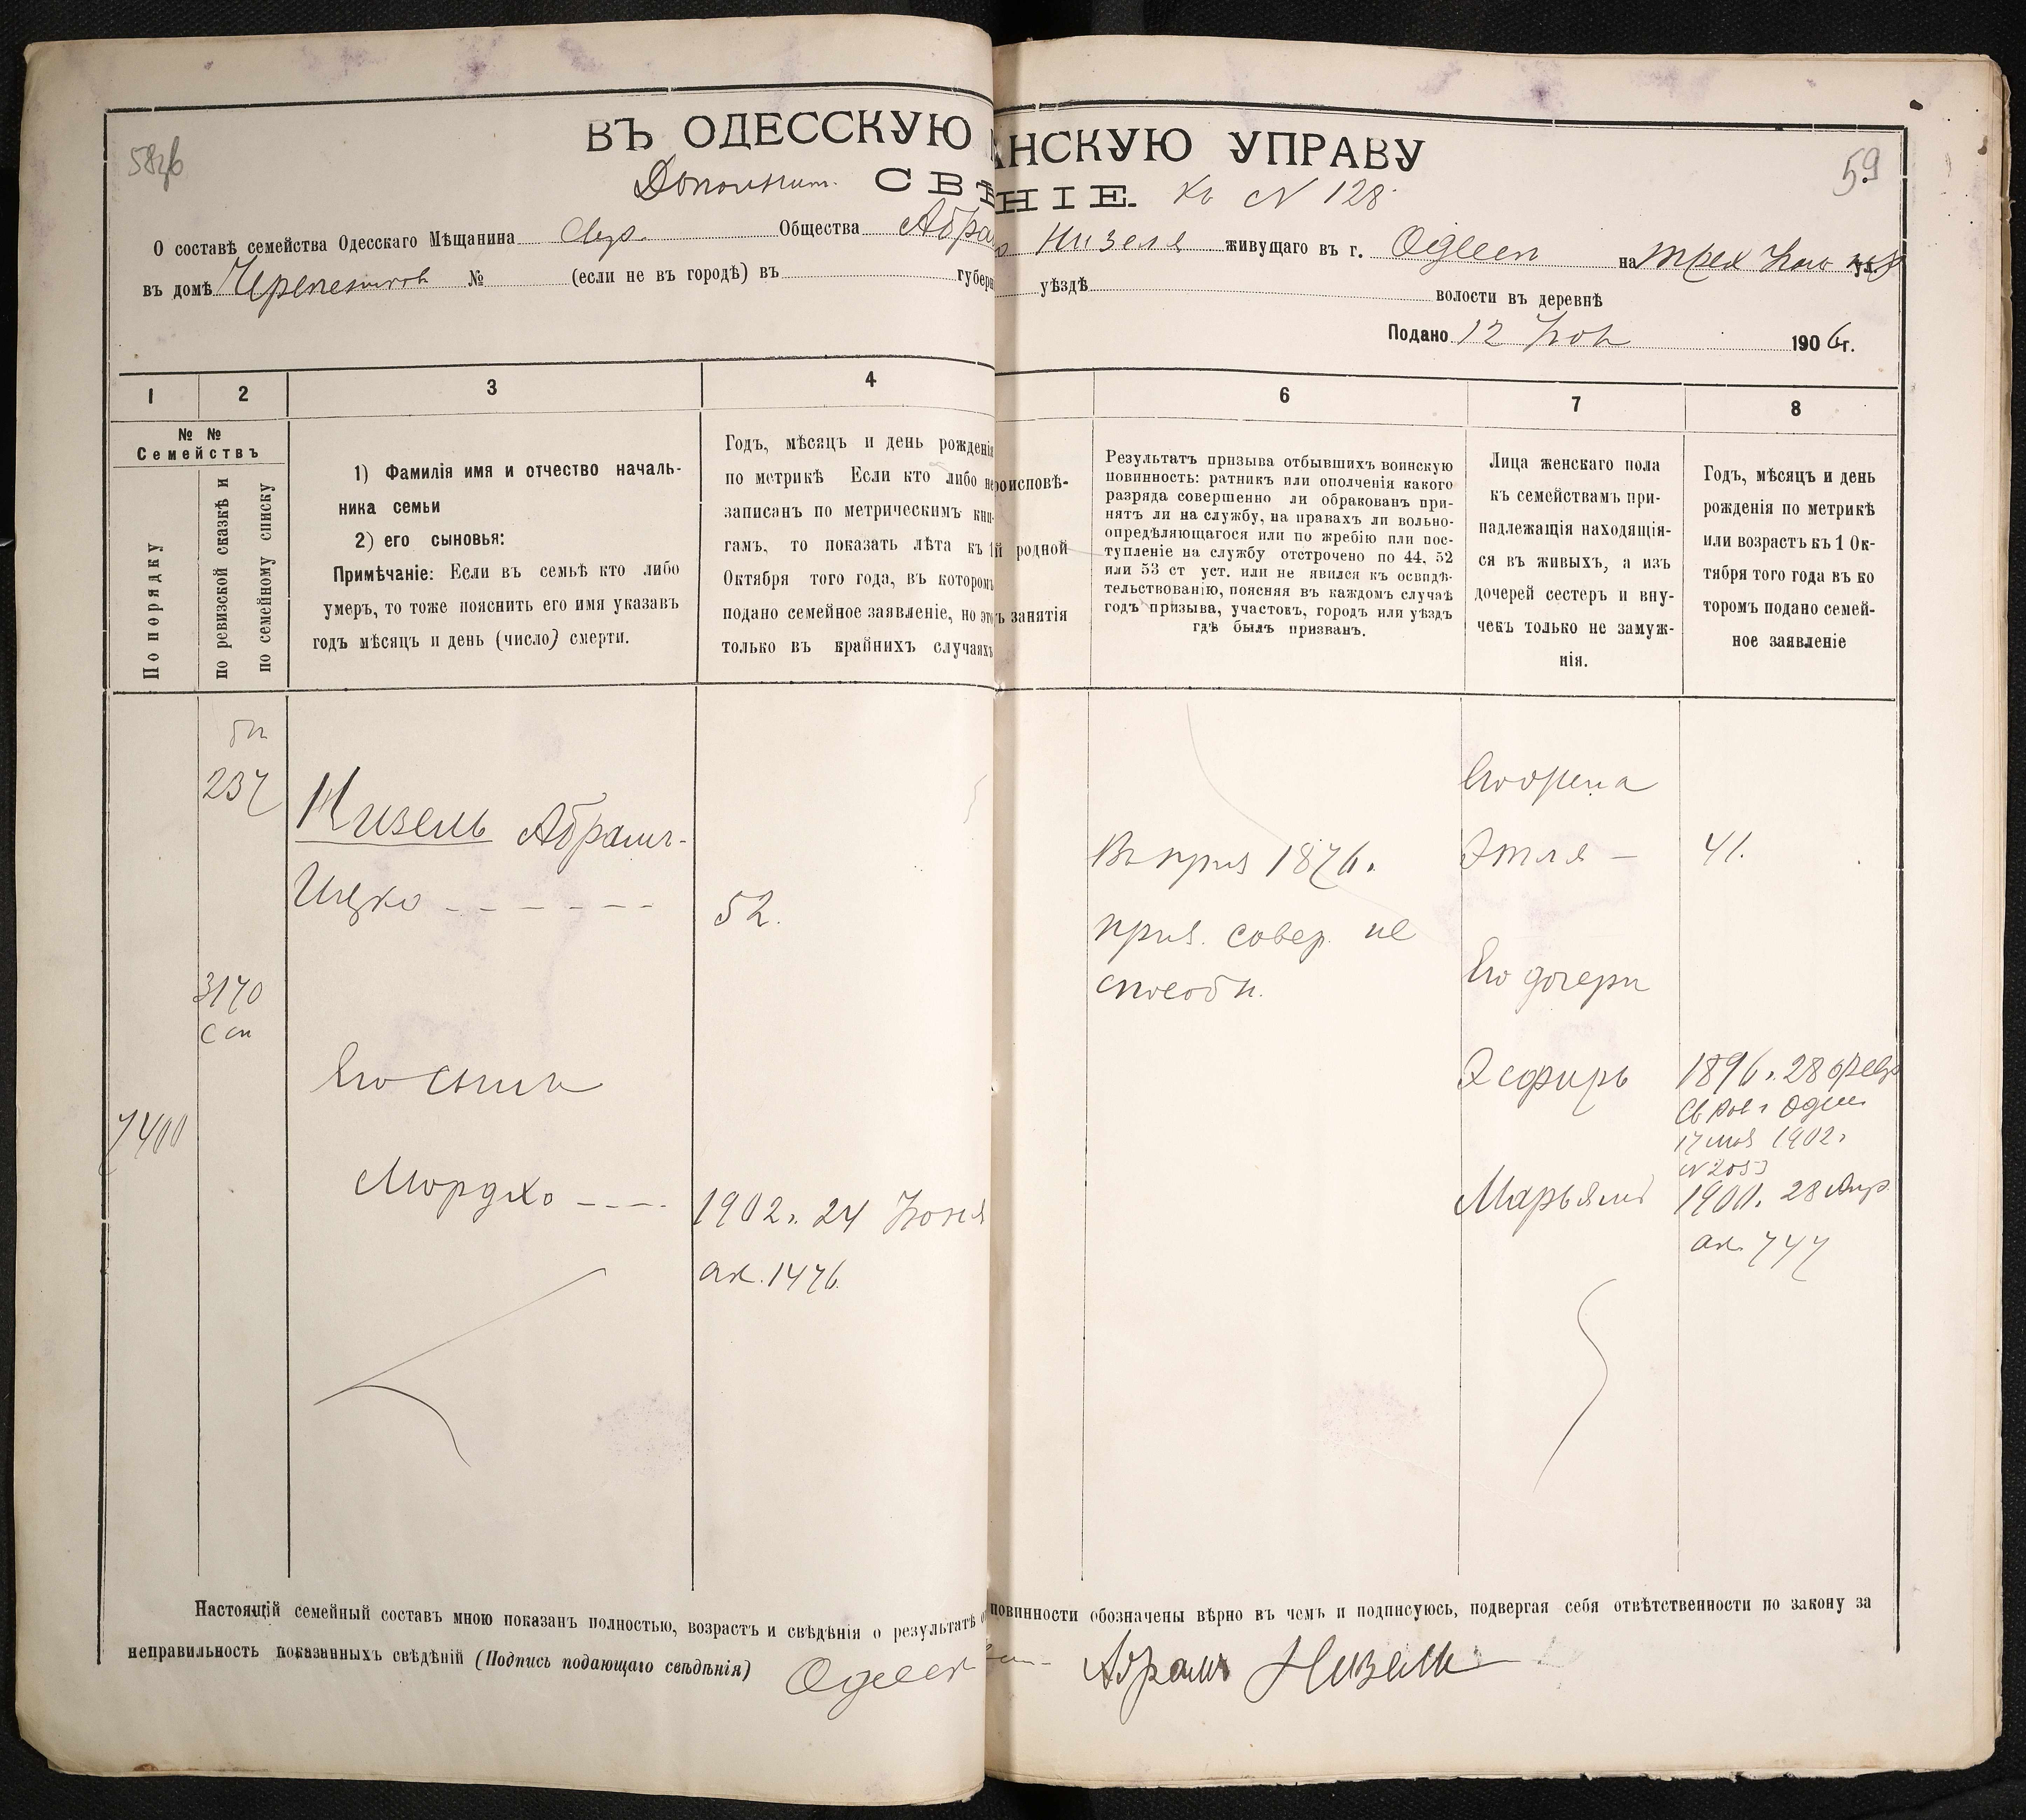 58об
59
ВЪ ОДЕССКУЮ АНСКУЮ УПРАВУ
Дополнит. СВѢ НІЕ. къ N 128
О составѣ семейства Одесскаго Мѣщанина Евр. Общества Абра Низеля живущаго въ г. Одессѣ на
въ домѣ Черепенников № (если не въ городѣ) въ губерн уѣздѣ волости въ деревнѣ
Подано 12 1906 г.
1 2 3 4 6 7 8
№ №
Семействъ
По порядку
по ревизской сказкѣ и
по семейному списку
1) Фамилія имя и отчество началь-
ника семьи
2) его сыновья:
Примѣчаніе: Если въ семьѣ кто либо
умеръ, то тоже пояснить его имя указавъ
годъ мѣсяцъ и день (число) смерти.
Годъ, мѣсяцъ и день рожденія
по метрикѣ Если кто либо не
записанъ по метрическимъ кни-
гамъ, то показать лѣта къ 1
Октября того года, въ которомъ
подано семейное заявленіе, но это
только въ крайнихъ случаяхъ
роисповѣ-
й родной
ъ занятія
Результатъ призыва отбывшихъ воинскую
повинность: ратникъ или ополченія какого
разряда совершенно ли обракованъ при-
нятъ ли на службу, на правахъ ли вольно-
опредѣляющагося или по жребію или пос-
тупленіе на службу отстрочено по 44, 52
или 53 ст уст. или не явился къ освидѣ-
тельствованію, поясняя въ каждомъ случаѣ
годъ призыва, участокъ, городъ или уѣздъ
гдѣ былъ призванъ.
Лица женскаго пола
къ семействамъ при-
надлежащія находящія-
ся въ живыхъ, а изъ
дочерей сестеръ и вну-
чекъ только не замуж-
нія.
Годъ, мѣсяцъ и день
рожденія по метрикѣ
или возрастъ къ 1 Ок-
тября того года въ ко
торомъ подано семей-
ное заявленіе
237
3170
7400
Низель Абрамъ-
Ицко - - - - - - 52.
Его сынъ
Мордко - - - 1902 г. 24 Іюня
ак. 1476.
Въ приз 1876 г.
приз. совер. не
способн.
Его жена
Этля - 41.
Его дочери
Эсфирь 1896 г. 28 февр
17 мая 1902 г.
N 2053
Марьямъ 1900 г. 28 Апр
ак. 747
Настоящій семейный составъ мною показанъ полностью, возрастъ и свѣдѣнія о результатѣ о повинности обозначены вѣрно въ чемъ и подписуюсь, подвергая себя отвѣтственности по закону за
неправильность показанныхъ свѣдѣній (Подпись подающаго свѣдѣнія) Одесск Абрамъ Низель